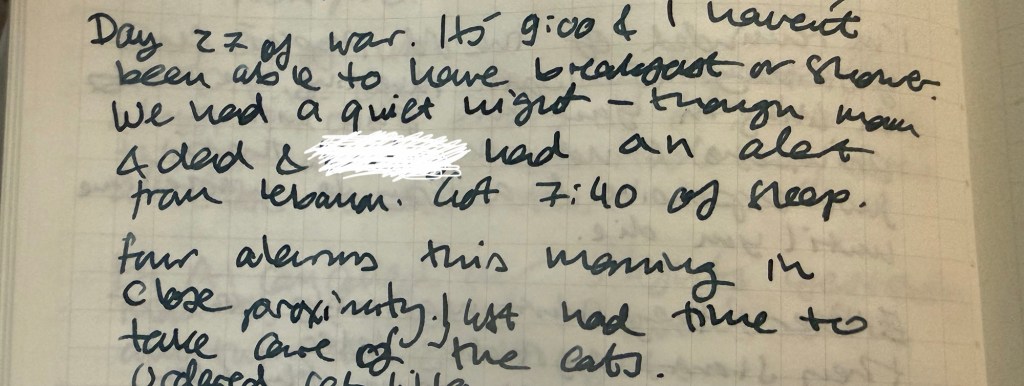 Day 27 of war. It's 9:00 & I haven't
been able to have breakfast or shower.
We had a quiet night - though mom
& dad & had an alert
from Lebanon. Got 7:40 of sleep.
Four alarms this morning in
close proximity. Just had time to
take care of the cats.
Ordered cat